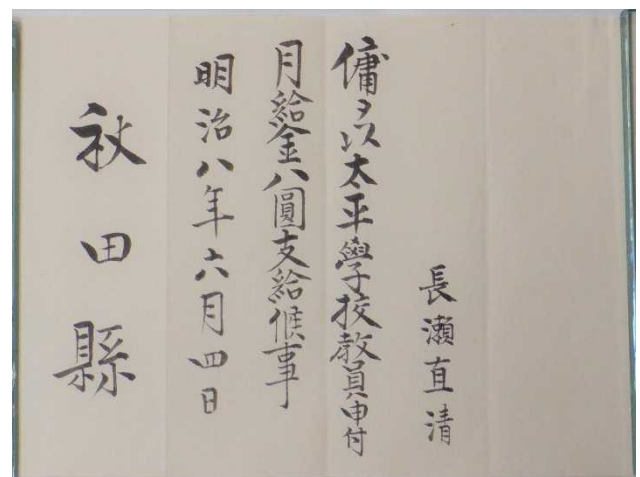 長瀬直清
傭ヲ以太平學校教員申付
月給金八圓支給候事
明治八年六月四日
秋田縣